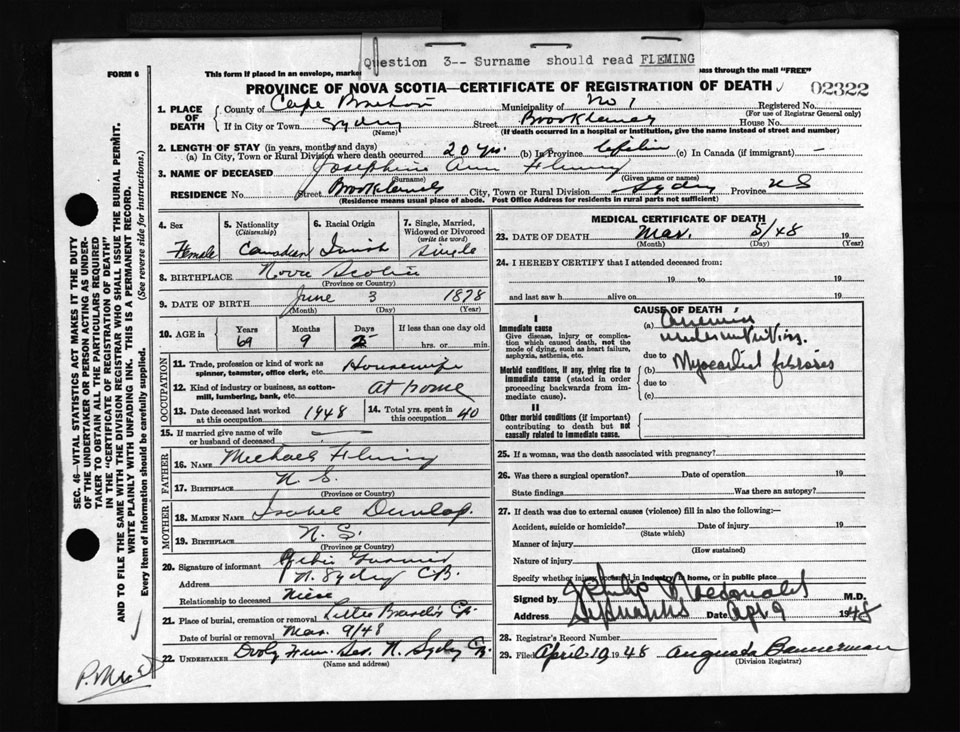 Question 3-- Surname should read FLEMING
FORM 6
This form if placed in an envelope, marke pass through the mail "FREE"
PROVINCE OF NOVA SCOTIA—CERTIFICATE OF REGISTRATION OF DEATH
02322
1. PLACE OF DEATH County of Cape Breton Municipality of No 1 Registered No.
(For use of Registrar General only)
If in City or Town Sydney Street House No.
(Name) (If death occurred in a hospital or institution, give the name instead of street and number)
2. LENGTH OF STAY (in years, months and days)
(a) In City, Town or Rural Division where death occurred 20 yrs. (b) In Province (c) In Canada (if immigrant) —
3. NAME OF DECEASED Josephine Ann
(Surname) (Given name or names)
RESIDENCE No. Street City, Town or Rural Division Sydney Province N S
(Residence means usual place of abode. Post Office Address for residents in rural parts not sufficient)
4. Sex 5. Nationality (Citizenship) 6. Racial Origin 7. Single, Married, Widowed or Divorced (write the word)
Female Canadian single
8. BIRTHPLACE Nova Scotia
(Province or Country)
9. DATE OF BIRTH June 3 1878
(Month) (Day) (Year)
10. AGE in Years Months Days If less than one day old
69 9 hrs. or min.
OCCUPATION
11. Trade, profession or kind of work as spinner, teamster, office clerk, etc. Housewife
12. Kind of industry or business, as cotton-mill, lumbering, bank, etc. at home
13. Date deceased last worked at this occupation 1948 14. Total yrs. spent in this occupation 40
15. If married give name of wife or husband of deceased
FATHER
16. NAME Michael
17. BIRTHPLACE N. S.
(Province or Country)
MOTHER
18. MAIDEN NAME Isabel Dunlop
19. BIRTHPLACE N. S.
(Province or Country)
20. Signature of informant
Address N. Sydney C.B.
Relationship to deceased Niece
21. Place of burial, cremation or removal
Date of burial or removal Mar. 9/48
22. UNDERTAKER N. Sydney
(Name and address)
MEDICAL CERTIFICATE OF DEATH
23. DATE OF DEATH Mar. 5/48 19
(Month) (Day) (Year)
24. I HEREBY CERTIFY that I attended deceased from:
19 to 19
and last saw h alive on 19
CAUSE OF DEATH
I
Immediate cause (a)
Give disease, injury or complication which caused death, not the mode of dying, such as heart failure, asphyxia, asthenia, etc.
due to
Morbid conditions, if any, giving rise to immediate cause (stated in order proceeding backwards from immediate cause).
(b) Myocardial fibrosis
due to
(c)
II
Other morbid conditions (if important) contributing to death but not causally related to immediate cause.
25. If a woman, was the death associated with pregnancy?
26. Was there a surgical operation? Date of operation 19
State findings Was there an autopsy?
27. If death was due to external causes (violence) fill in also the following:—
Accident, suicide or homicide? Date of injury 19
(State which)
Manner of injury
(How sustained)
Nature of injury
Specify whether injury occurred in industry, in home, or in public place
Signed by Macdonald M.D.
Address Date Apr 9 1948
28. Registrar's Record Number
29. Filed April 19 1948 Augusta Bannerman
(Division Registrar)
SEC. 46—VITAL STATISTICS ACT MAKES IT THE DUTY
OF THE UNDERTAKER OR PERSON ACTING AS UNDER-
TAKER TO OBTAIN ALL THE PARTICULARS REQUIRED
IN THE "CERTIFICATE OF REGISTRATION OF DEATH"
AND TO FILE THE SAME WITH THE DIVISION REGISTRAR WHO SHALL ISSUE THE BURIAL PERMIT.
WRITE PLAINLY WITH UNFADING INK. THIS IS A PERMANENT RECORD.
Every item of Information should be carefully supplied. (See reverse side for instructions.)